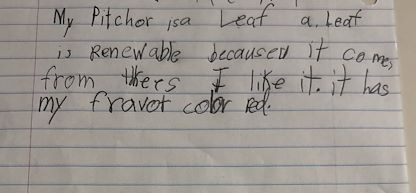 My Pitchor isa Leaf a. Leaf
is Renewable becaused it comes,
from thers I like it. it has
my fravot color Red.